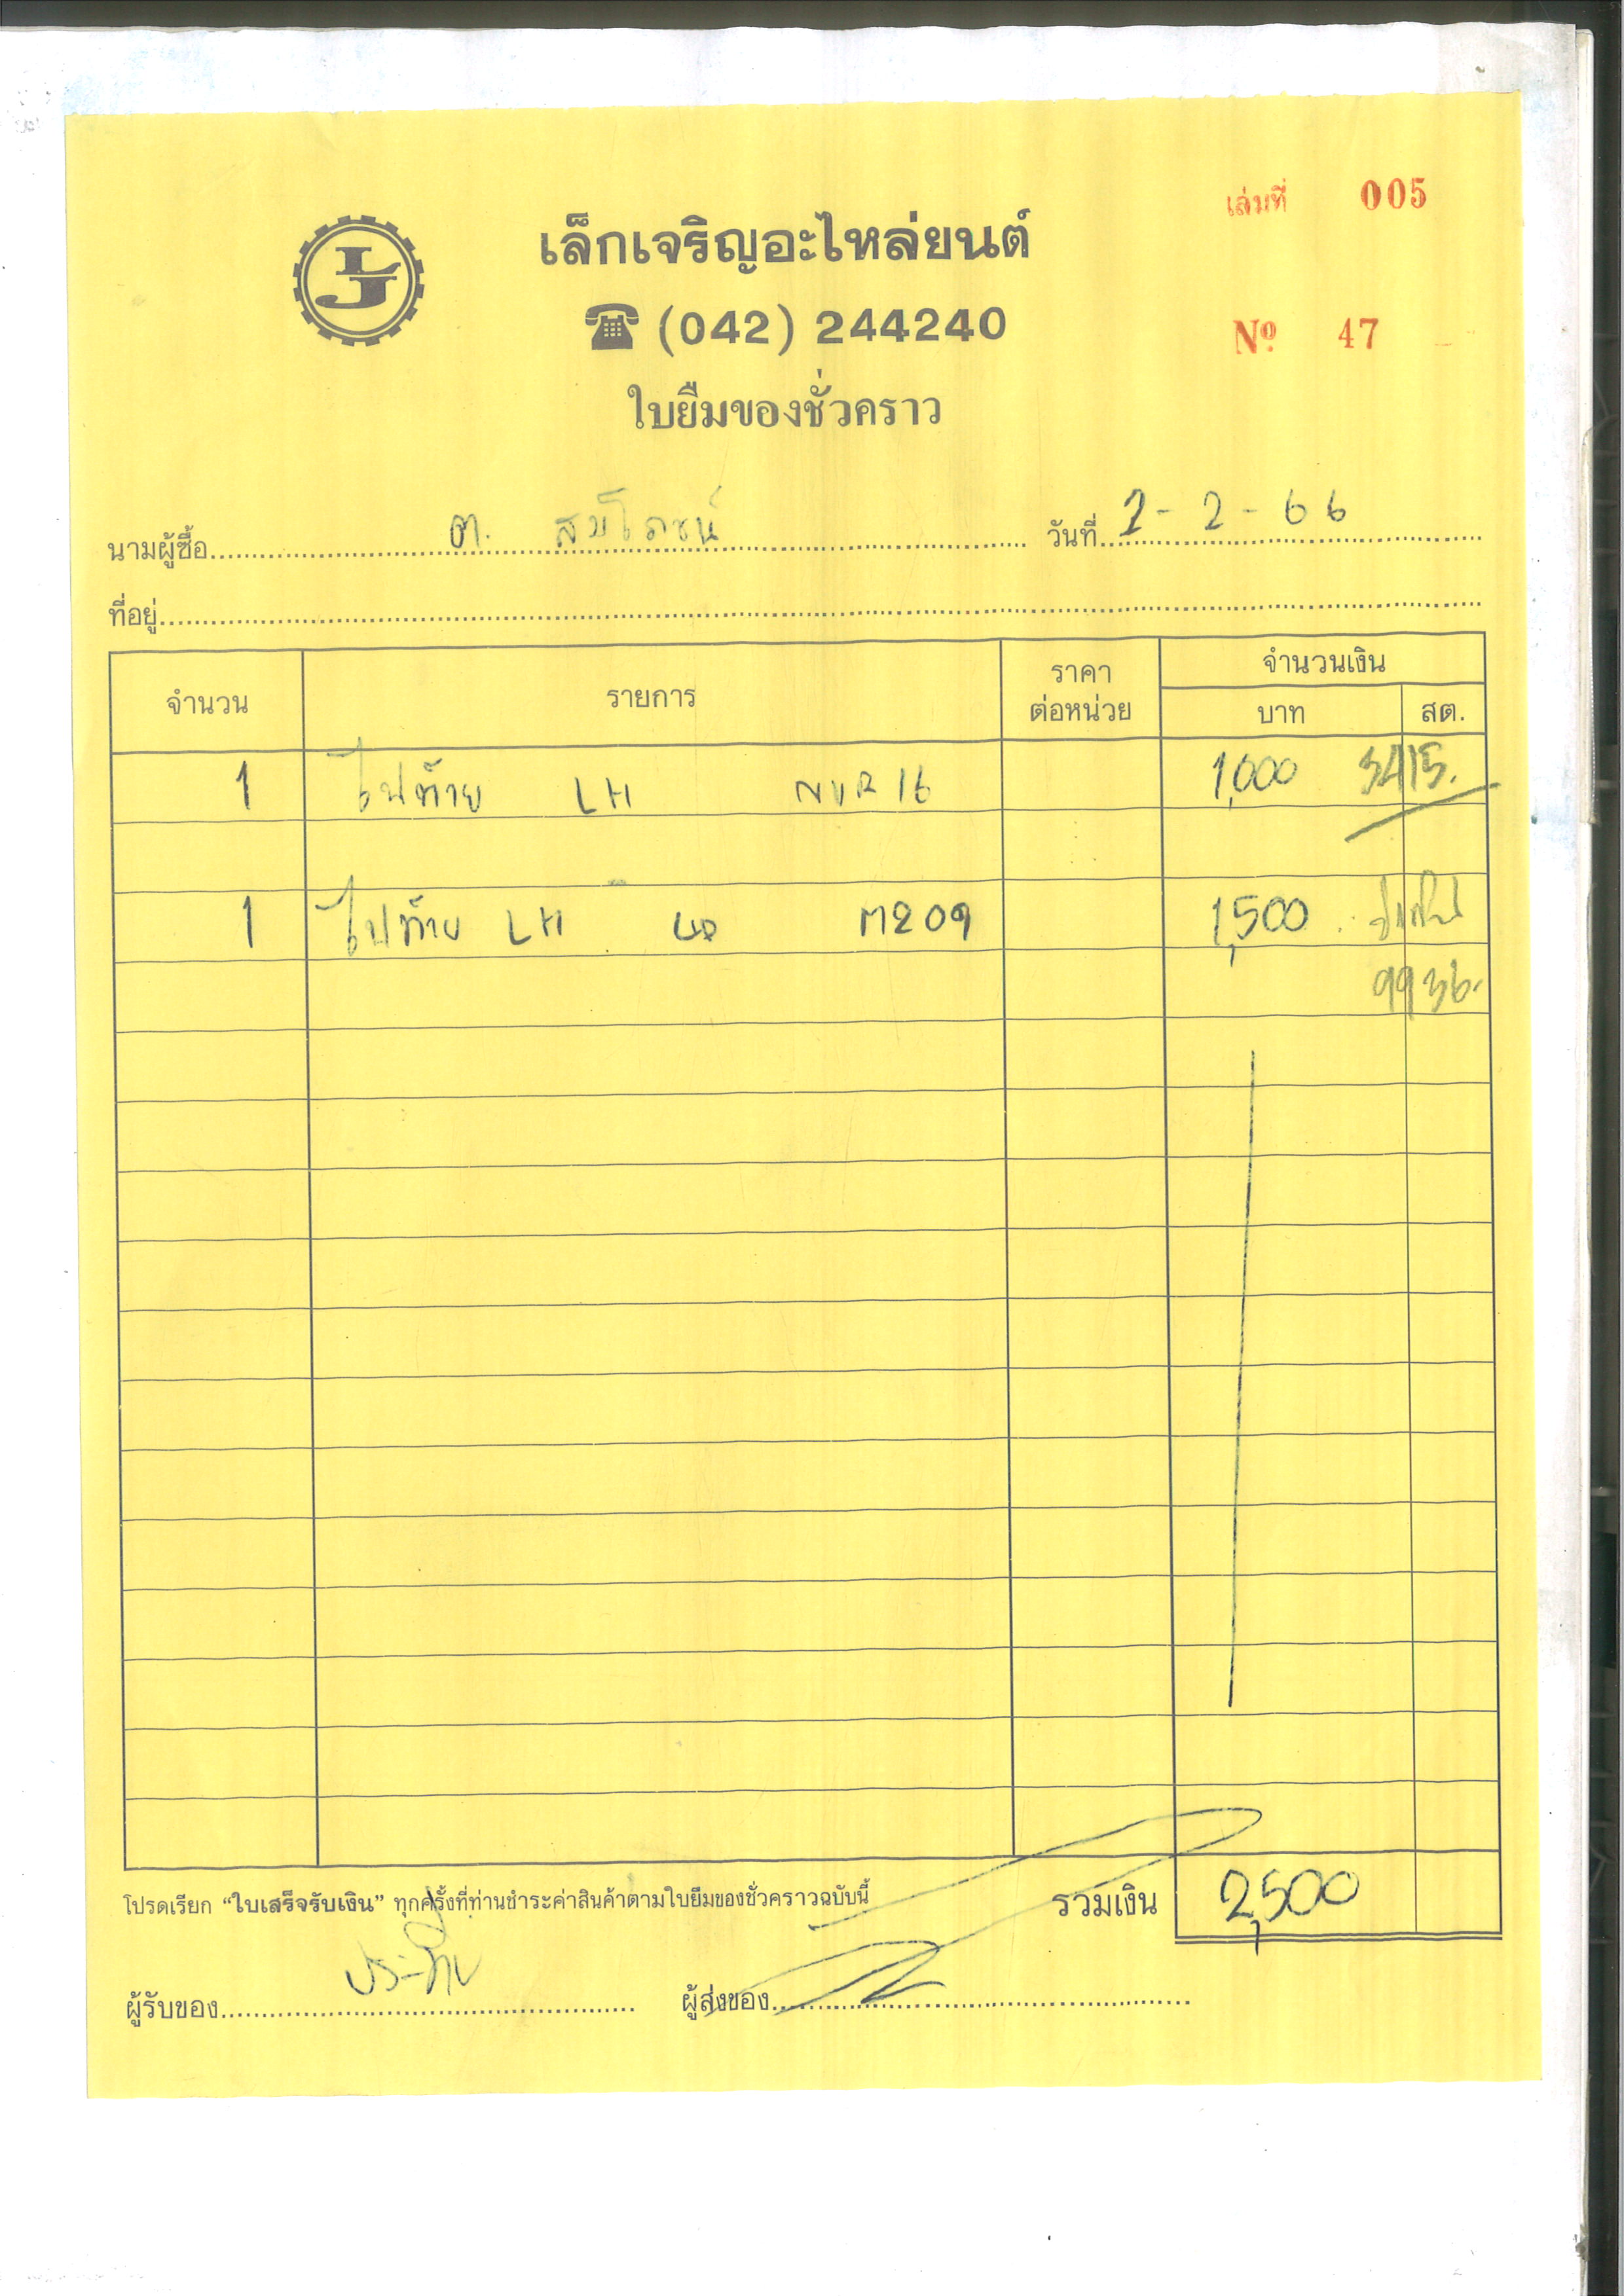 เล่มที่ 005
LJ
เล็กเจริญอะไหล่ยนต์
☎ (042) 244240
Nº 47
ใบยืมของชั่วคราว
นามผู้ซื้อ ต. สมโภชน์ วันที่ 2-2-66
ที่อยู่
จำนวน รายการ ราคาต่อหน่วย จำนวนเงิน
บาท สต.
1 ไฟท้าย LH NVR16 1,000 3415.
1 ไฟท้าย LH M209 1,500
9936.
โปรดเรียก “ใบเสร็จรับเงิน” ทุกครั้งที่ท่านชำระค่าสินค้าตามใบยืมของชั่วคราวฉบับนี้ รวมเงิน 2,500
ผู้รับของ ผู้ส่งของ